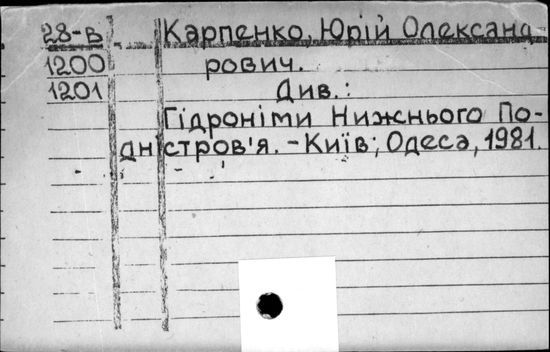 28-В Карпенко, Юрій Олександ-
1200 рович.
1201 Див.:
Гідроніми Нижнього По-
дністров'я. - Київ; Одеса, 1981.